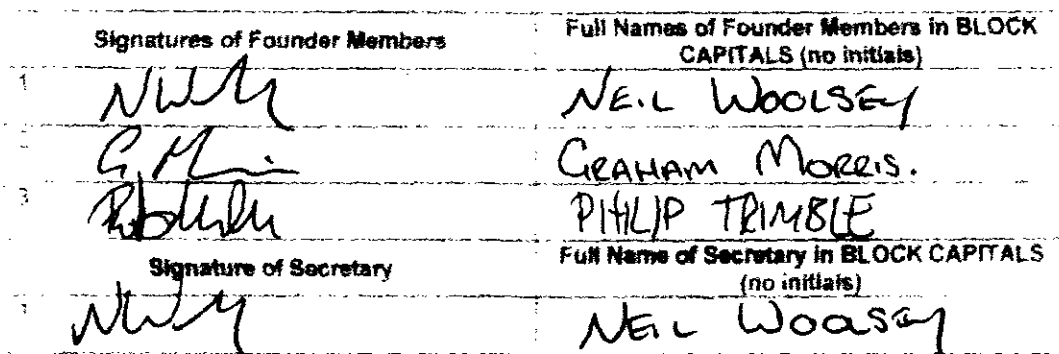 Signatures of Founder Members
Full Names of Founder Members in BLOCK
CAPITALS (no initials)
1 NEIL WOOLSEY
GRAHAM MORRIS.
3 PHILIP TRIMBLE
Signature of Secretary
Full Name of Secretary in BLOCK CAPITALS
(no initials)
NEIL WOOLSEY